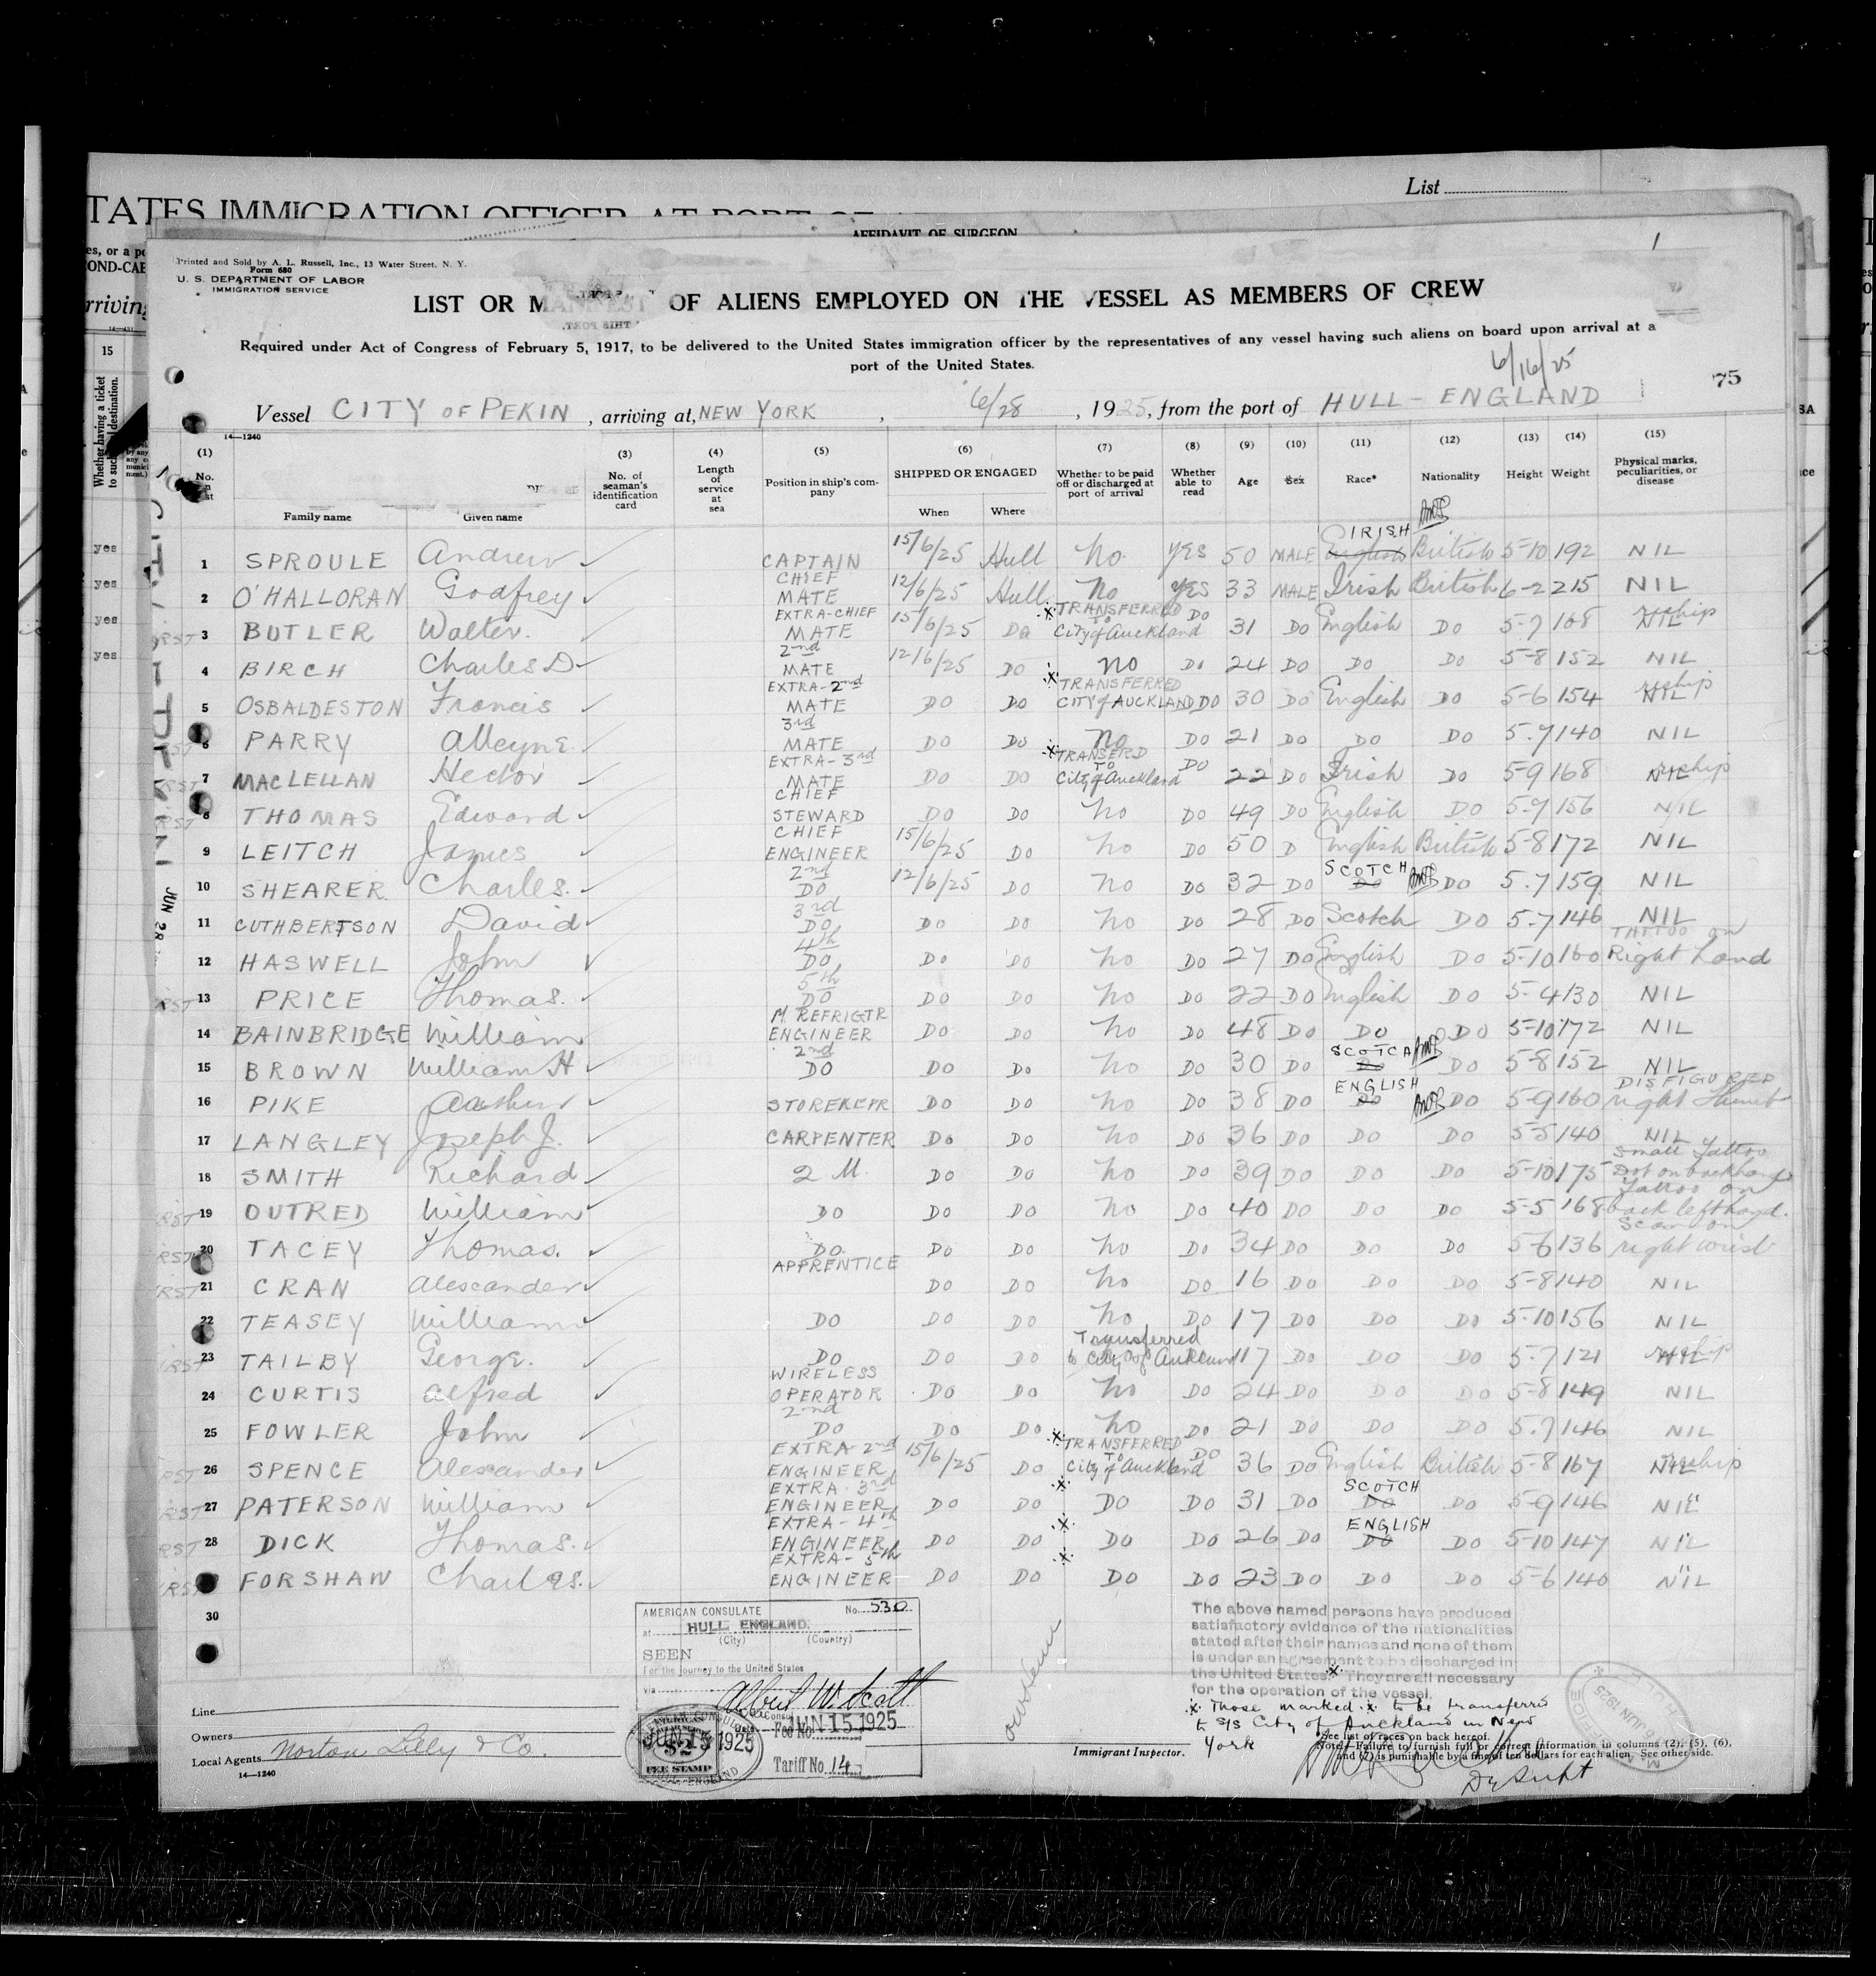 List
TATES IMMIGRATION OFFICER AT PORT OF
AFFIDAVIT OF SURGEON
1
Printed and Sold by A. L. Russell, Inc., 13 Water Street, N. Y.
Form 680
U. S. DEPARTMENT OF LABOR
IMMIGRATION SERVICE
LIST OR MANIFEST OF ALIENS EMPLOYED ON THE VESSEL AS MEMBERS OF CREW
Required under Act of Congress of February 5, 1917, to be delivered to the United States immigration officer by the representatives of any vessel having such aliens on board upon arrival at a
port of the United States.
6/16/25
75
Vessel CITY OF PEKIN, arriving at, NEW YORK, 6/28, 1925, from the port of HULL - ENGLAND
14—1240
(1) (3) (4) (5) (6) (7) (8) (9) (10) (11) (12) (13) (14) (15)
No. of seaman's identification card
Length of service at sea
Position in ship's company
SHIPPED OR ENGAGED
Whether to be paid off or discharged at port of arrival
Whether able to read
Age Sex Race* Nationality Height Weight
Physical marks, peculiarities, or disease
Family name Given name When Where
1 SPROULE Andrew CAPTAIN 15/6/25 Hull No. YES 50 MALE English IRISH British 5-10 192 NIL
2 O'HALLORAN Godfrey CHIEF MATE 12/6/25 Hull No YES 33 MALE Irish British 6-2 215 NIL
3 BUTLER Walter. EXTRA-CHIEF MATE 15/6/25 DO TRANSFERRED TO City of Auckland DO 31 DO English DO 5-7 168 NIL
4 BIRCH Charles D 2nd MATE 12/6/25 DO NO DO 24 DO DO DO 5-8 152 NIL
5 OSBALDESTON Francis EXTRA-2nd MATE DO DO TRANSFERRED CITY of AUCKLAND DO 30 DO English DO 5-6 154 NIL
6 PARRY Alleyne. 3rd MATE DO DO NO DO 21 DO DO DO 5-7 140 NIL
7 MACLELLAN Hector EXTRA-3rd MATE DO DO TRANSERD TO City of Auckland DO 22 DO Irish DO 5-9 168 NIL
8 THOMAS Edward CHIEF STEWARD DO DO No DO 49 DO English DO 5-7 156 NIL
9 LEITCH James CHIEF ENGINEER 15/6/25 DO No DO 50 D English British 5-8 172 NIL
10 SHEARER Charles. 2nd DO 12/6/25 DO No DO 32 DO DO SCOTCH DO 5-7 159 NIL
11 CUTHBERTSON David 3rd DO DO DO No DO 28 DO Scotch DO 5-7 146 NIL
12 HASWELL John 4th DO DO DO No DO 27 DO English DO 5-10 160 TATTOO on Right hand
13 PRICE Thomas. 5th DO DO DO No DO 22 DO English DO 5-4 130 NIL
14 BAINBRIDGE William REFRIGTR ENGINEER DO DO No DO 48 DO DO DO 5-10 172 NIL
15 BROWN William H 2nd DO DO DO No DO 30 DO DO SCOTCH DO 5-8 152 NIL
16 PIKE STOREKEPR DO DO No DO 38 DO DO ENGLISH DO 5-9 160 DISFIGURED right thumb
17 LANGLEY Joseph J. CARPENTER DO DO No DO 36 DO DO DO 5-5 140 NIL
18 SMITH Richard 2 M. DO DO No DO 39 DO DO DO 5-10 175 Small Tattoo Dot on back hand
19 OUTRED William DO DO DO No DO 40 DO DO DO 5-5 168 Tattoo on back left hand.
20 TACEY Thomas. DO. DO DO No DO 34 DO DO DO 5-6 136 Scar on right wrist
21 CRAN Alexander APPRENTICE DO DO No DO 16 DO DO DO 5-8 140 NIL
22 TEASEY William DO DO DO No DO 17 DO DO DO 5-10 156 NIL
23 TAILBY George. DO DO DO Transferred to City of Auckland 17 DO DO DO 5-7 121 NIL
24 CURTIS Alfred WIRELESS OPERATOR DO DO No DO 24 DO DO DO 5-8 149 NIL
25 FOWLER John 2nd DO DO DO No DO 21 DO DO DO 5-7 146 NIL
26 SPENCE Alexander EXTRA 2nd ENGINEER 15/6/25 DO TRANSFERRED TO City of Auckland DO 36 DO English British 5-8 167 NIL
27 PATERSON William EXTRA 3rd ENGINEER DO DO DO DO 31 DO DO SCOTCH DO 5-9 146 NIL
28 DICK Thomas. EXTRA-4th ENGINEER DO DO DO DO 26 DO DO ENGLISH DO 5-10 147 NIL
FORSHAW Charles. EXTRA-5th ENGINEER DO DO DO DO 23 DO DO DO 5-6 140 NIL
30
AMERICAN CONSULATE No. 530
at HULL ENGLAND.
(City) (Country)
SEEN
For the journey to the United States
via
Albert W. Scott
JUN 15 1925
Fee No.
Tariff No. 14
FEE STAMP
The above named persons have produced
satisfactory evidence of the nationalities
stated after their names and none of them
is under an agreement to be discharged in
the United States. They are all necessary
for the operation of the vessel.
Those marked .x. to be transferred
to S/S City of Auckland in New
York
Line
Owners
Local Agents Norton Lilly & Co.
14—1240
Immigrant Inspector.
*See list of races on back hereof.
Note.—Failure to furnish full or correct information in columns (2), (5), (6),
and (7) is punishable by a fine of ten dollars for each alien. See other side.
15
Whether having a ticket to such destination.
yes
yes
yes
yes
JUN 28